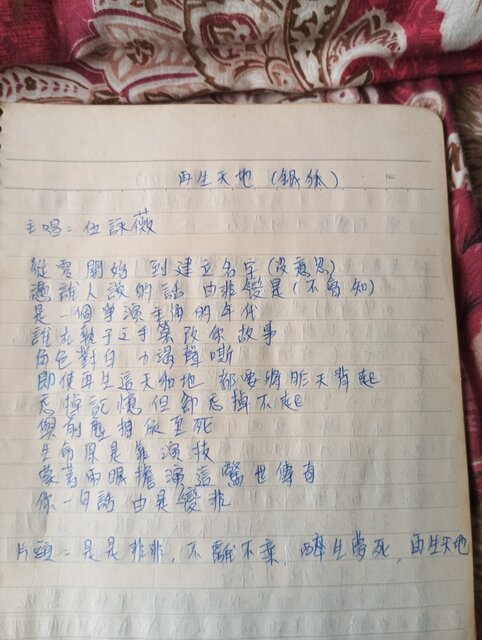 再生天地 (銀狐)
No.
主唱：伍詠薇
從零開始 到建立名字(沒意思)
憑誰人說的話 由非變是(不會知)
是一個爭演主角的年代
誰在執子之手篡改你故事
角色對白 力竭聲嘶
即使再生這天和地 都要將昨天背起
忘掉記憶但卻忘掉不起
與前塵相依至死
生命原是靠演技
蒙著兩眼擔演這驚世傳奇
你一句話 由是變非
片頭：是是非非，不離不棄，醉生夢死，再生天地